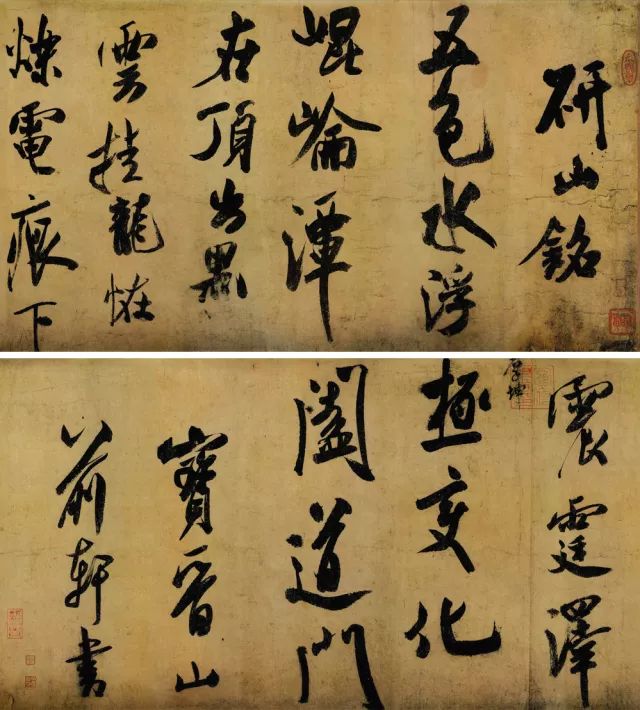 研山銘
五色水浮
崐崘潭
在頂出黑
雲挂龍恠
爍電痕下
震霆澤
厚坤
極变化
闔道門
寶晉山
前軒書